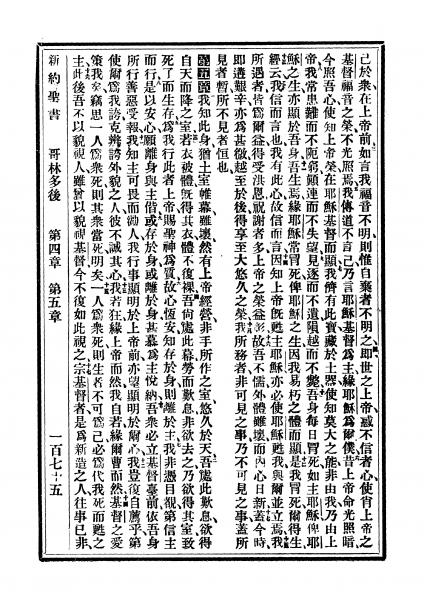 己於衆在上帝前如言我福音不明則惟自棄者不明之即世之上帝惑不信者心使肖上帝之
基督福音之榮不光照焉我傳道不言己乃言耶穌基督爲主緣耶穌爲爾僕昔上帝命光照暗
今照吾心使知上帝榮在耶穌基督面而顯我儕有此寶藏於土器使知莫大之能非由我乃由上
帝我常患難而不阨窮顚連而不失望見逐而不遺隕越而不斃吾身每日冒死如主耶穌俾耶
穌之生亦顯於吾身吾生爲緣耶穌常冒死俾耶穌之生因我易朽之體而顯是我冒死爾得生
經云我信而言也我有此心故信而言因知上帝旣甦主耶穌亦必使耶穌甦我與爾並立焉我
所遇者皆爲爾益得受洪恩祝謝者多上帝之榮益彰故吾不懦外體雖壞而內心日新蓋今時
即遘艱辛亦爲甚微越至於後得享至大悠久之榮我所務者非可見之事乃不可見之事蓋所
見者暫所不見者恒也
第五章我知此身猶土室帷幕雖壞然有上帝經營非手所作之室悠久於天吾處此歎息欲得
自天而降之室若衣被體旣得其衣體不復裸吾尙處此幕勞而歎息非欲去之乃欲得其室致
死了而生存爲我行此者上帝賜聖神爲質故心恆安知存於身則離於主我非憑目覩第信主
而行是以安心願離身與主偕或存於身或離於身甚慕爲主悅納吾衆必立基督臺前依吾身
所行善惡受報我知主可畏而勸人我行事顯明於上帝前亦望顯明於爾心我豈復自薦乎第
使爾爲我誇克辨誇外貌之人彼不誠其心我若狂緣上帝而然我自若緣爾曹而然基督之愛
策我矣竊思一人爲衆死則其衆當死明矣一人爲衆死則生者不可爲己必爲代我死而甦之
主此後吾不以貌視人雖曾以貌視基督今不復如此視之宗基督者是爲新造之人往事已非
新約聖書 哥林多後 第四章 第五章 一百七十五